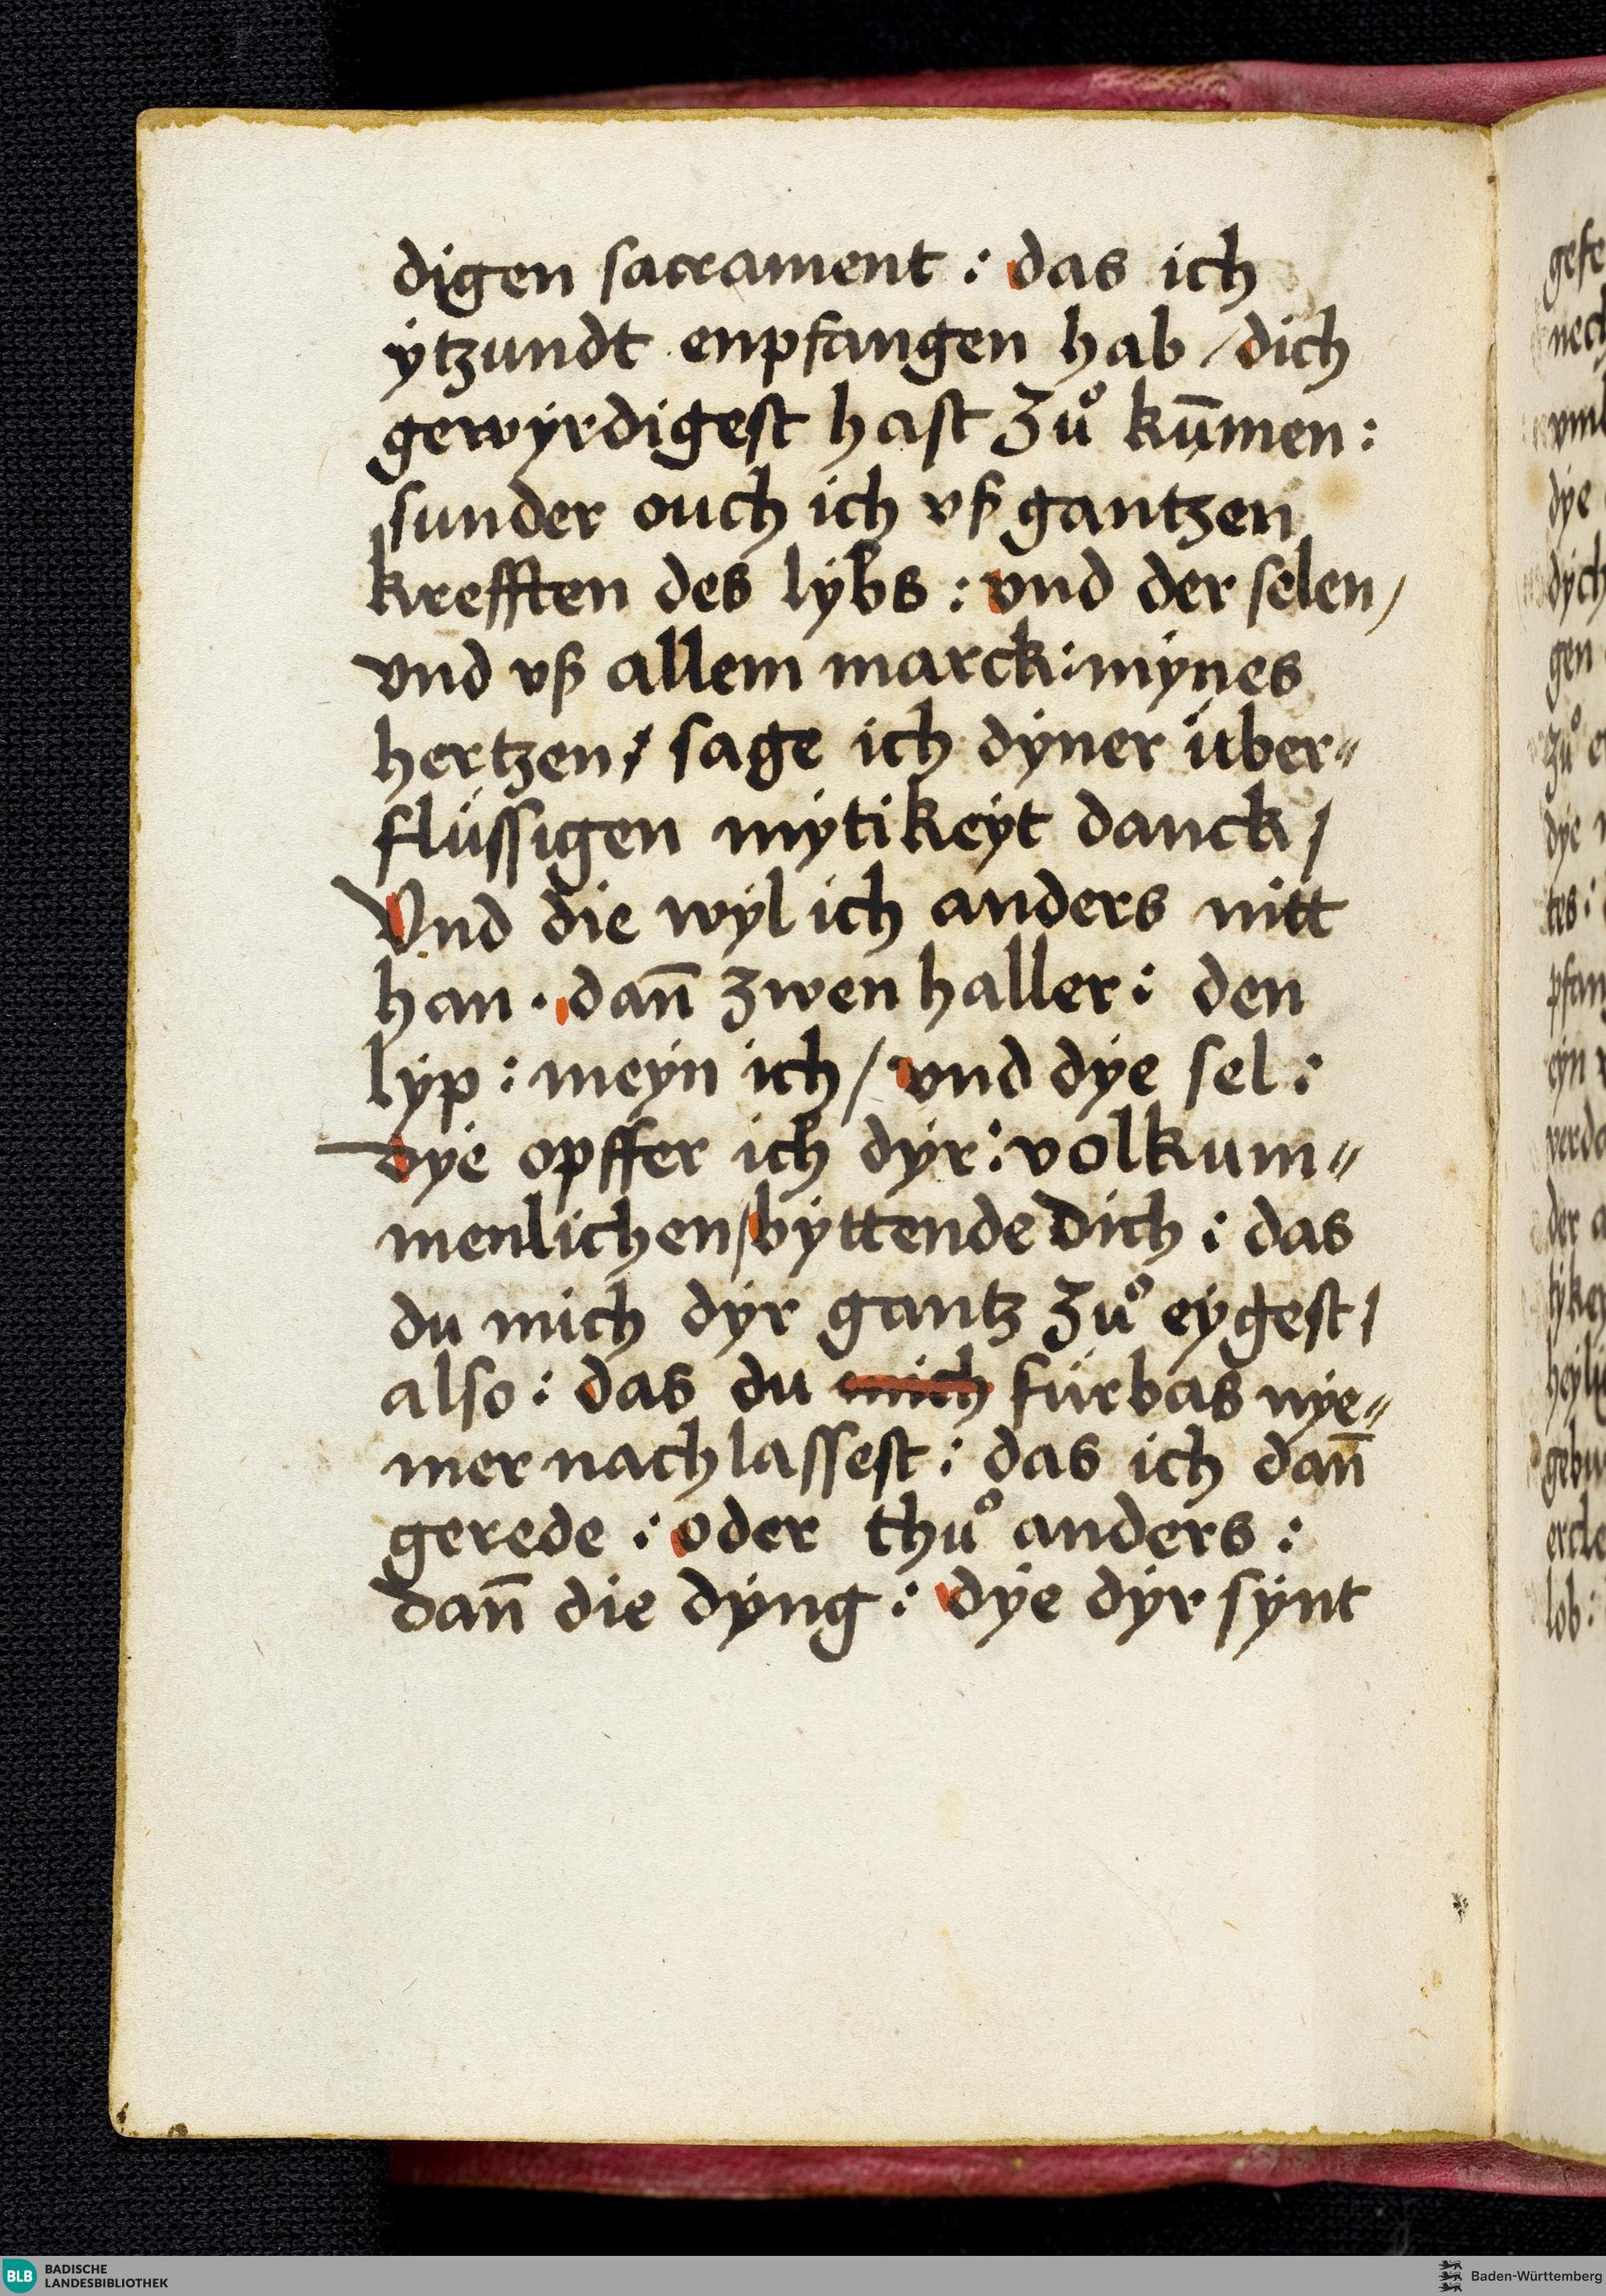 digen sacrament : das ich
ytzundt enpfangen hab / dich
gewyrdigest hast zuͦ kum̄en :
sunder ouch ich vß gantzen
krefften des lybs : vnd der selen /
vnd vß allem marck : mynes
hertzen / sage ich dyner über⸗
flüssigen mytikeyt danck /
Vnd die wyl ich anders nitt
han · dan̄ zwen haller : den
lyp : meyn ich / vnd dye sel :
dye opffer ich dyr : volkum⸗
menlichen / byttende dich : das
du mich dyr gantz zuͦ eygest /
also : das du mich fürbas nye⸗
mer nach lassest : das ich dan̄
gerede : oder thuͦ anders :
dan̄ die dyng : dye dyr synt
gefe
nech
dye
dych
gen
zuͦ e
dye
tes :
pfan
eyn
verd
der a
tyke
heyli
gebu
ercle
lob :
BLB BADISCHE
LANDESBIBLIOTHEK
Baden-Württemberg